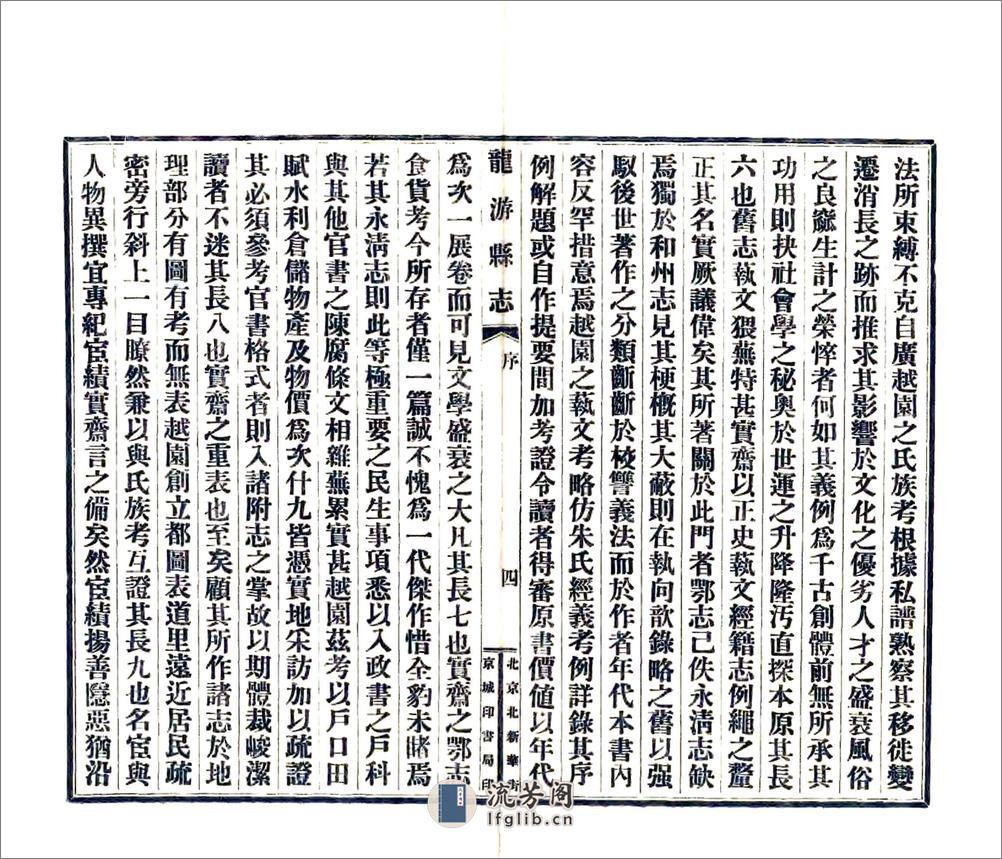 法所束縛不克自廣越園之氏族考根據私譜熟察其移徙變
遷消長之跡而推求其影響於文化之優劣人才之盛衰風俗
之良窳生計之榮悴者何如其義例爲千古創體前無所承其
功用則抉社會學之秘奧於世運之升降隆汚直探本原其長
六也舊志埶文猥蕪特甚實齋以正史埶文經籍志例繩之釐
正其名實厥議偉矣其所著關於此門者鄂志已佚永清志缺
焉獨於和州志見其梗槪其大蔽則在執向歆錄略之舊以强
馭後世著作之分類齗齗於校讐義法而於作者年代本書內
容反罕措意焉越園之埶文考略仿朱氏經義考例詳錄其序
例解題或自作提要間加考證令讀者得審原書價値以年代
龍游縣志
序
四
北京北新華街
京城印書局印
爲次一展卷而可見文學盛衰之大凡其長七也實齋之鄂志
食貨考今所存者僅一篇誠不愧爲一代傑作惜全豹未睹焉
若其永清志則此等極重要之民生事項悉以入政書之戶科
與其他官書之陳腐條文相雜蕪累實甚越園茲考以戶口田
賦水利倉儲物產及物價爲次什九皆憑實地采訪加以疏證
其必須參考官書格式者則入諸附志之掌故以期體裁峻潔
讀者不迷其長八也實齋之重表也至矣顧其所作諸志於地
理部分有圖有考而無表越園創立都圖表道里遠近居民疏
密旁行斜上一目瞭然兼以與氏族考互證其長九也名宦與
人物異撰宜專紀宦績實齋言之備矣然宦績揚善隱惡猶沿
流芳阁
lfglib.cn